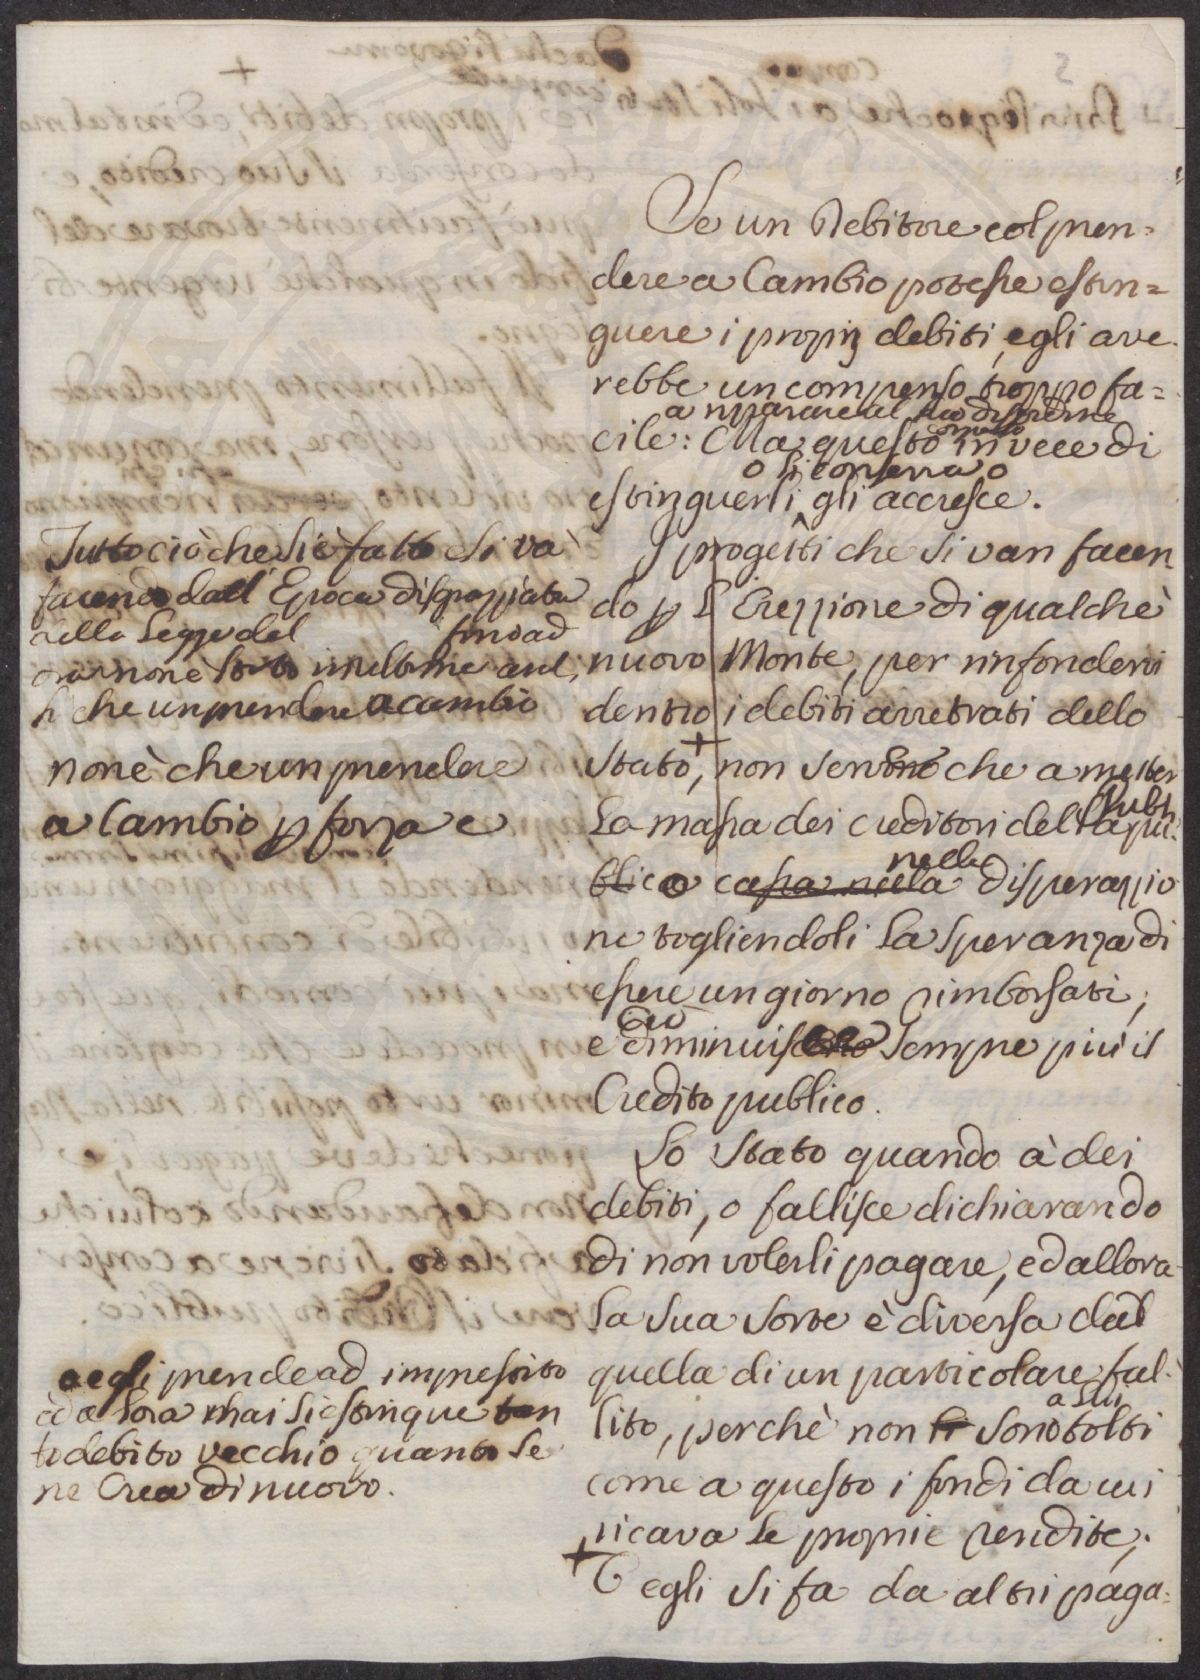 Se un Debitore col pren=
dere a Cambio potesse estin=
guere i proprij debiti, egli ave
rebbe un compenso troppo fa=
a riparare al suo disordine
cile: Ma questo invece di
o li conserva o
estinguerli gli accresce.
I progetti che si van facen
do p l'Erezzione di qualchè
nuovo Monte, per rinfondervi
dentro i debiti arretrati dello
Stato, non servono che a metter
la massa dei creditori del
publi
blico cassa nella disperazzio
nella
ne togliendoli la speranza di
essere un giorno rimborsati,
e diminuisce sempre più il
Credito publico.
Lo Stato quando à dei
debiti, o fallisce dichiarando
di non volerli pagare, ed allora
la sua sorte è diversa da
quella di un particolare fal=
a lui
lito, perchè non li sono tolti
come a questo i fondi da cui
ricava le proprie rendite;
+ O egli si fa da altri paga=
Tutto ciò che si è fatto e si và
facendo dall'Epoca disgrazziata
della Legge del fino ad
ora non è stato in ultima anali
si che un prendere a cambio
non è che un prendere
a Cambio p forza e
o egli prende ad imprestito
ed a lora mai si estingue tan
to debito vecchio quanto se
ne Crea di nuovo.